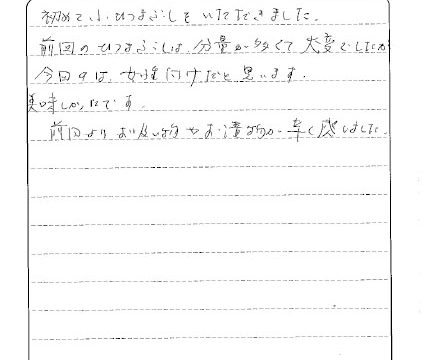 初めて小ひつまぶしをいただきました。
前回のひつまぶしは、分量が多くて大変でしたが
今回のは、女性向けだと思います。
美味しかったです。
前回よりお吸い物やお漬物が辛く感じました。